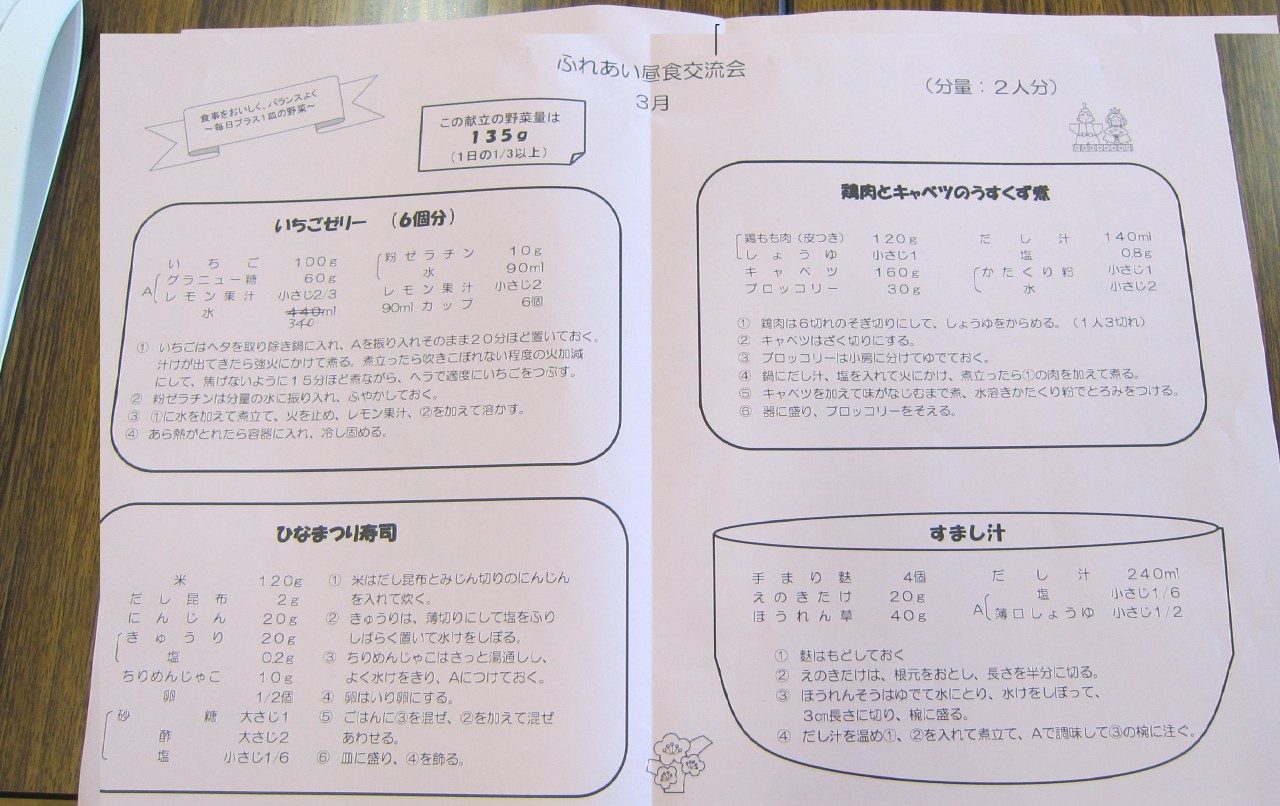 ふれあい昼食交流会
3月
（分量：2人分）
食事をおいしく、バランスよく
～毎日プラス1皿の野菜～
この献立の野菜量は
135g
（1日の1/3以上）
いちごゼリー （6個分）
いちご 100g
A グラニュー糖 60g
レモン果汁 小さじ2/3
水 440ml
340
粉ゼラチン 10g
水 90ml
レモン果汁 小さじ2
90mlカップ 6個
① いちごはヘタを取り除き鍋に入れ、Aを振り入れそのまま20分ほど置いておく。
汁けが出てきたら強火にかけて煮る。煮立ったら吹きこぼれない程度の火加減
にして、焦げないように15分ほど煮ながら、ヘラで適度にいちごをつぶす。
② 粉ゼラチンは分量の水に振り入れ、ふやかしておく。
③ ①に水を加えて煮立て、火を止め、レモン果汁、②を加えて溶かす。
④ あら熱がとれたら容器に入れ、冷し固める。
鶏肉とキャベツのうすくず煮
鶏もも肉（皮つき） 120g
しょうゆ 小さじ1
キャベツ 160g
ブロッコリー 30g
だし汁 140ml
塩 0.8g
かたくり粉 小さじ1
水 小さじ2
① 鶏肉は6切れのそぎ切りにして、しょうゆをからめる。（1人3切れ）
② キャベツはざく切りにする。
③ ブロッコリーは小房に分けてゆでておく。
④ 鍋にだし汁、塩を入れて火にかけ、煮立ったら①の肉を加えて煮る。
⑤ キャベツを加えて味がなじむまで煮、水溶きかたくり粉でとろみをつける。
⑥ 器に盛り、ブロッコリーをそえる。
ひなまつり寿司
米 120g
だし昆布 2g
にんじん 20g
きゅうり 20g
塩 0.2g
ちりめんじゃこ 10g
卵 1/2個
砂糖 大さじ1
酢 大さじ2
塩 小さじ1/6
① 米はだし昆布とみじん切りのにんじん
を入れて炊く。
② きゅうりは、薄切りにして塩をふり
しばらく置いて水けをしぼる。
③ ちりめんじゃこはさっと湯通しし、
よく水けをきり、Aにつけておく。
④ 卵はいり卵にする。
⑤ ごはんに③を混ぜ、②を加えて混ぜ
あわせる。
⑥ 皿に盛り、④を飾る。
すまし汁
手まり麩 4個
えのきたけ 20g
ほうれん草 40g
だし汁 240ml
A 塩 小さじ1/6
薄口しょうゆ 小さじ1/2
① 麩はもどしておく
② えのきたけは、根元をおとし、長さを半分に切る。
③ ほうれんそうはゆでて水にとり、水けをしぼって、
3cm長さに切り、椀に盛る。
④ だし汁を温め①、②を入れて煮立て、Aで調味して③の椀に注ぐ。